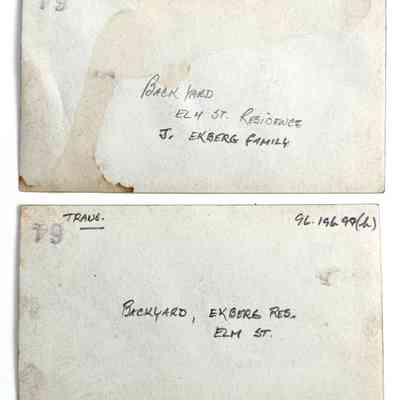 BACKYARD
ELM ST. RESIDENCE
J. EKBERG FAMILY
TRANS.
BACKYARD, EKBERG RES.
ELM ST.